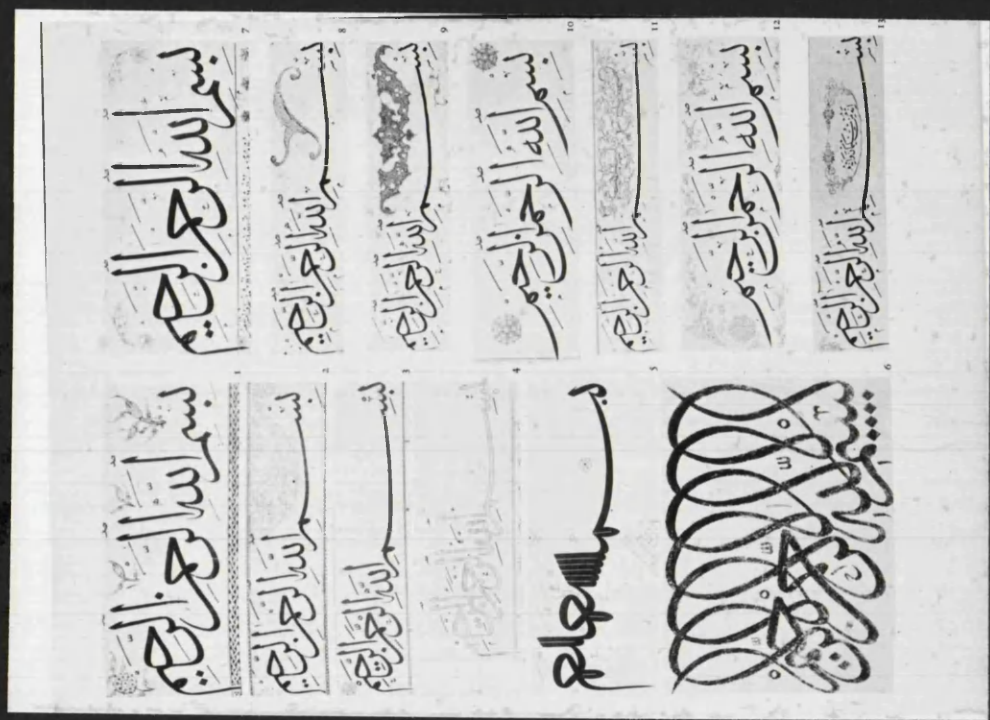 بسم الله الرحمن الرحيم
1
بسم الله الرحمن الرحيم
2
بسم الله الرحمن الرحيم
3
بسم الله الرحمن الرحيم
4
بسم الله الرحمن الرحيم
5
بسم الله الرحمن الرحيم
6
بسم الله الرحمن الرحيم
7
بسم الله الرحمن الرحيم
8
بسم الله الرحمن الرحيم
9
بسم الله الرحمن الرحيم
10
بسم الله الرحمن الرحيم
11
بسم الله الرحمن الرحيم
12
بسم الله الرحمن الرحيم
13